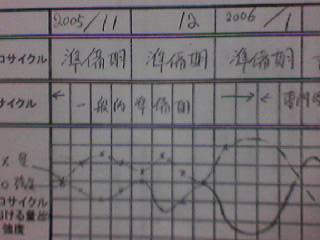 2005/11 12 2006/1
ロサイクル 準備期 準備期 準備期
サイクル ← 一般的準備期 → ← 専門
× 量
○ 強度
ロサイクル
ける量と
強度